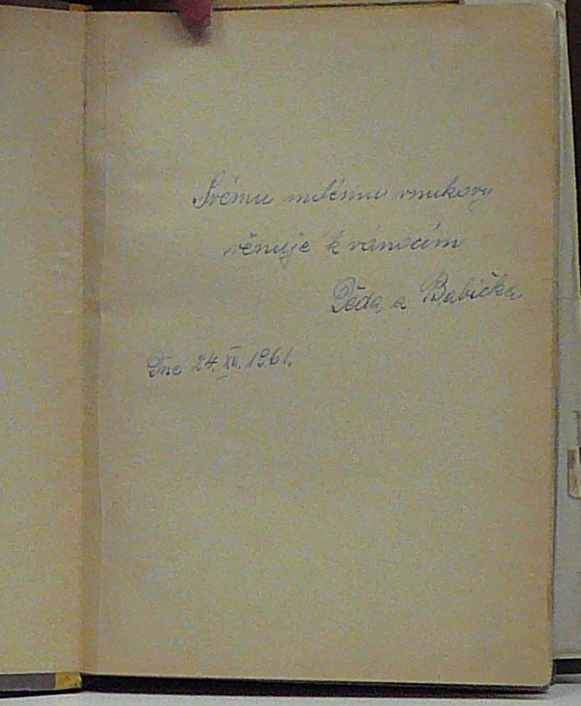 Svému milému vnukovy
věnuje k vánocům
Děda a Babička
Dne 24. XII. 1961.